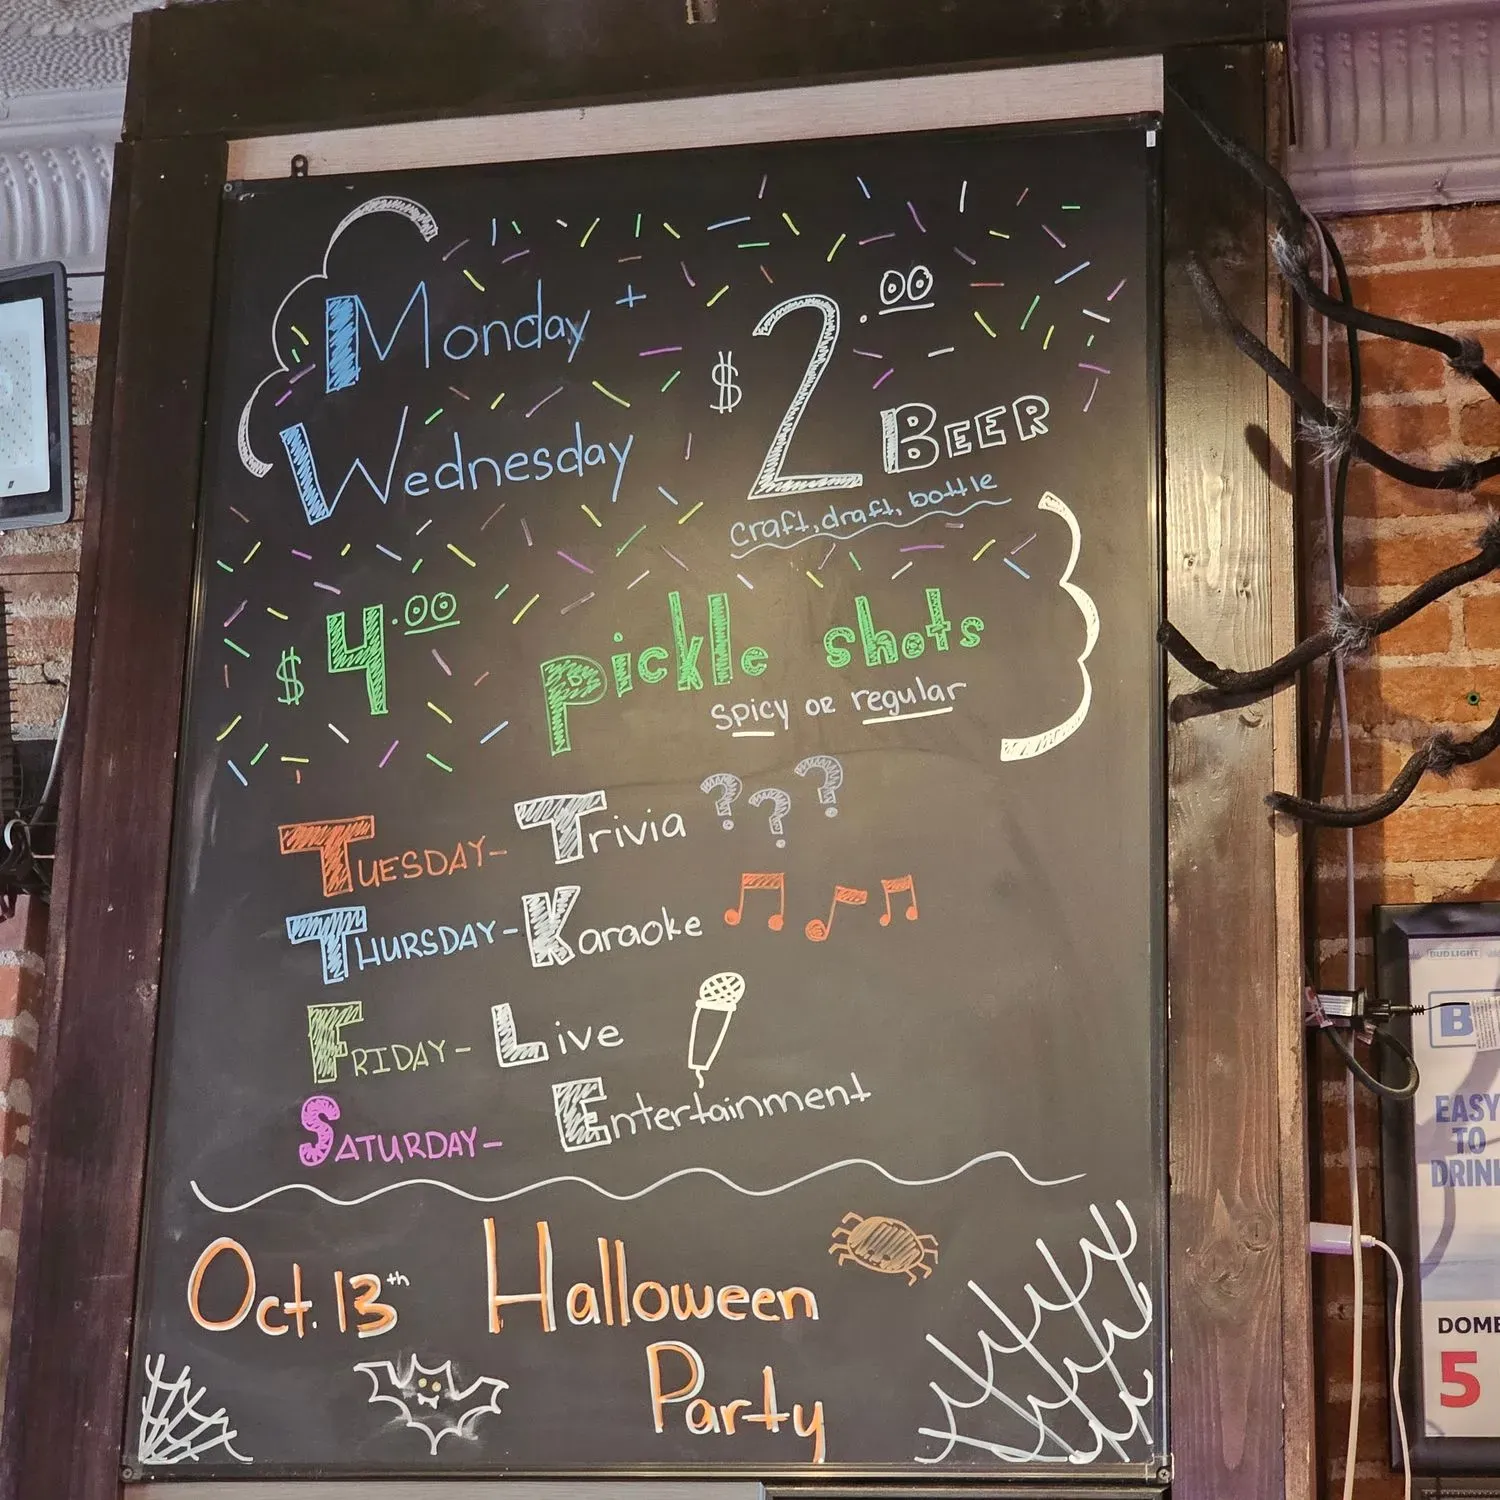 Monday +
Wednesday
$2.00 BEER
craft, draft, bottle
$4.00 pickle shots
spicy or regular
TUESDAY- Trivia ???
THURSDAY- Karaoke
FRIDAY- Live
SATURDAY- Entertainment
Oct. 13th Halloween
Party
BUD LIGHT
EASY
TO
5